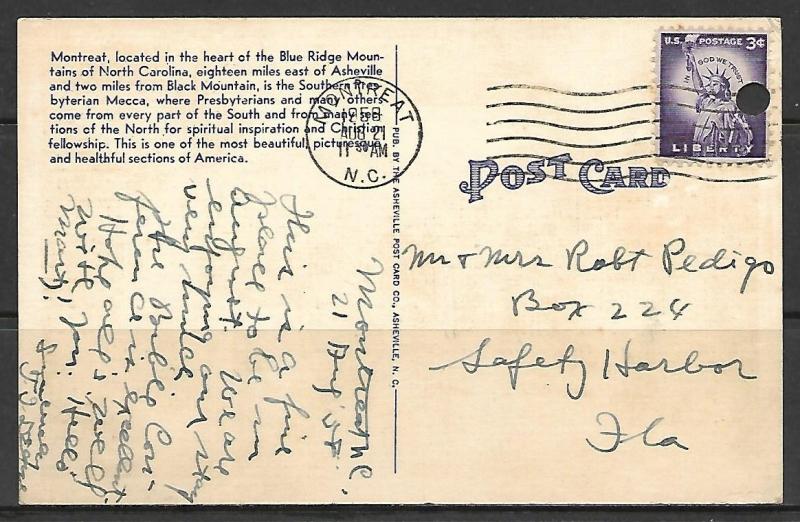 Montreat, located in the heart of the Blue Ridge Moun-
tains of North Carolina, eighteen miles east of Asheville
and two miles from Black Mountain, is the Southern Pres-
byterian Mecca, where Presbyterians and many others
come from every part of the South and from many sec-
tions of the North for spiritual inspiration and Christian
fellowship. This is one of the most beautiful, picturesque
and healthful sections of America.
MONTREAT
1958
AUG 21
11 30 AM
N.C.
U.S. POSTAGE 3¢
IN GOD WE TRUST
LIBERTY
POST CARD
PUB. BY THE ASHEVILLE POST CARD CO., ASHEVILLE, N. C.
Montreat NC
21 Aug
This is a fine
place to be in
August. We are
enjoying our stay
very much
The Bible Con-
ference is excellent
Hope all is well
with you. Hello
Mary,
Mr & Mrs Robt Pedigo
Box 224
Safety Harbor
Fla